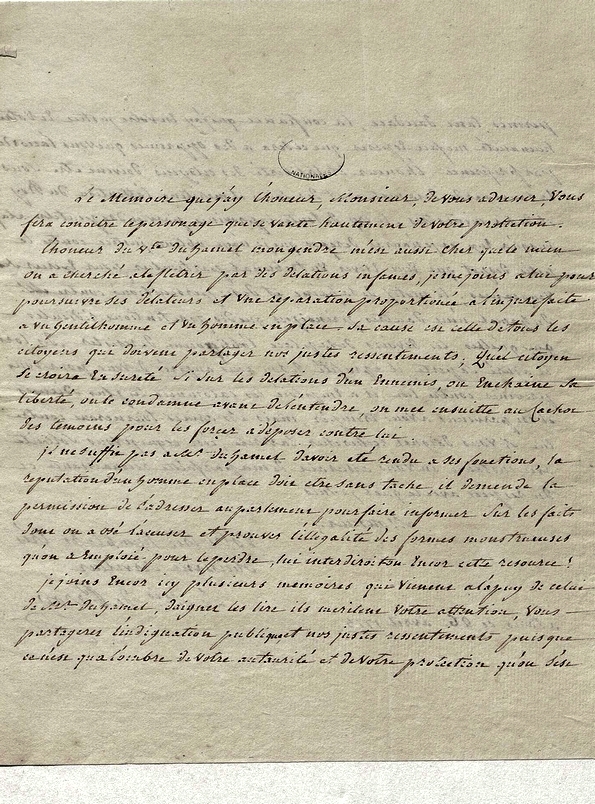 NATIONALES
Le Memoire que jay lhoneur, Monsieur, de vous adresser, Vous
fera conoitre le personage qui se vante hautement de votre protection.
lhoneur du vte duhamel mon gendre m'est aussi cher que le mien
on a cherché a le fletrir par des délations infames, je me joins a lui pour
poursuivre ses délateurs et une reparation proportionée a l'injure faite
a un gentilhomme et un homme en place. sa cause est celle de tous les
citoyens qui doivent partager nos justes ressentiments; Quel citoyen
se croira En sureté si sur les délations d'un Ennemis, on Enchaine sa
liberté, on le condamne avant de l'entendre, on met ensuitte au Cachot
des temoins pour les forcer a déposer contre lui
il ne suffit pas a Mr. duhamel davoir eté rendu a ses fonctions, la
reputation d'un homme en place doit etre sans tache il demende la
permission de s'adresser au parlement pour faire informer Sur les faits
dont on a osé laccuser et prouver l'illégalité des formes monstrueuses
qu'on a Emploié pour le perdre, lui interdiroit on Encor cette resource!
je joins Encor icy plusieurs memoires qui vienent a lapuy de celui
de Mr. Duhamel, daigner les lire ils meritent votre attention Vous
partagerez l'indignation publique et nos justes ressentiments puisque
ce n'est qua lombre de votre autaurité et de votre protection qu'on s'est